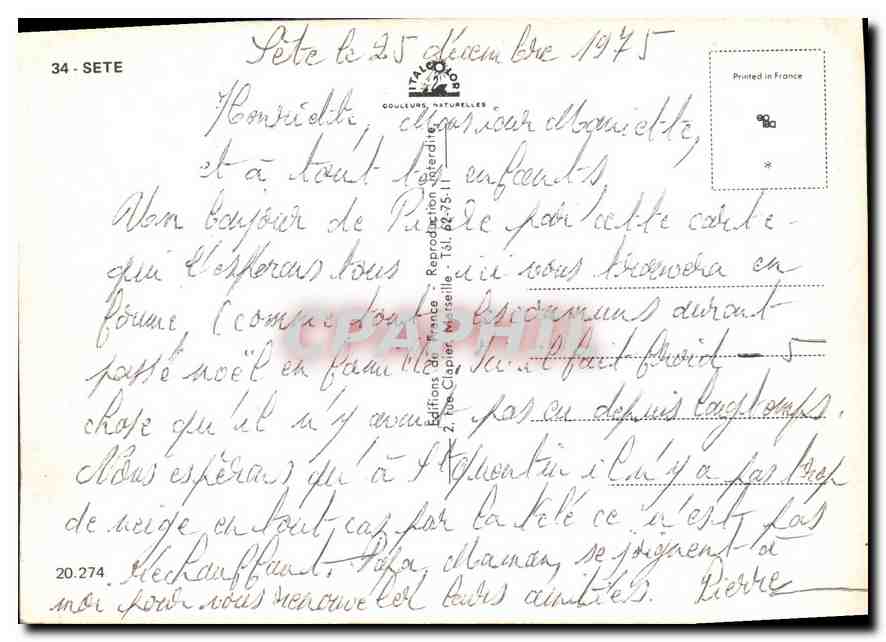 Sète le 25 décembre 1975
34 - SETE
ITALCOLOR
COULEURS NATURELLES
Printed in France
Henriette, Monsieur Mariette,
et à tout les enfants
bonjour de Pierre par cette carte
qui l'esperons tous ici vous trouvera en
forme, (comme dont durant
passé noël en famille. Ici il fait froid - 5
chose qu'il n'y avait pas eu depuis longtemps.
Nous espérons qu'à St Quentin il n'y a pas trop
de neige en tout cas par la télé ce n'est pas
réchauffant. Papa, Maman, se joignent à
20.274
moi pour vous renouveler leurs amitiés. Pierre
Editions de France - Reproduction interdite
2, rue Clapier Marseille - Tél. 62-75-11
CPAPHIL